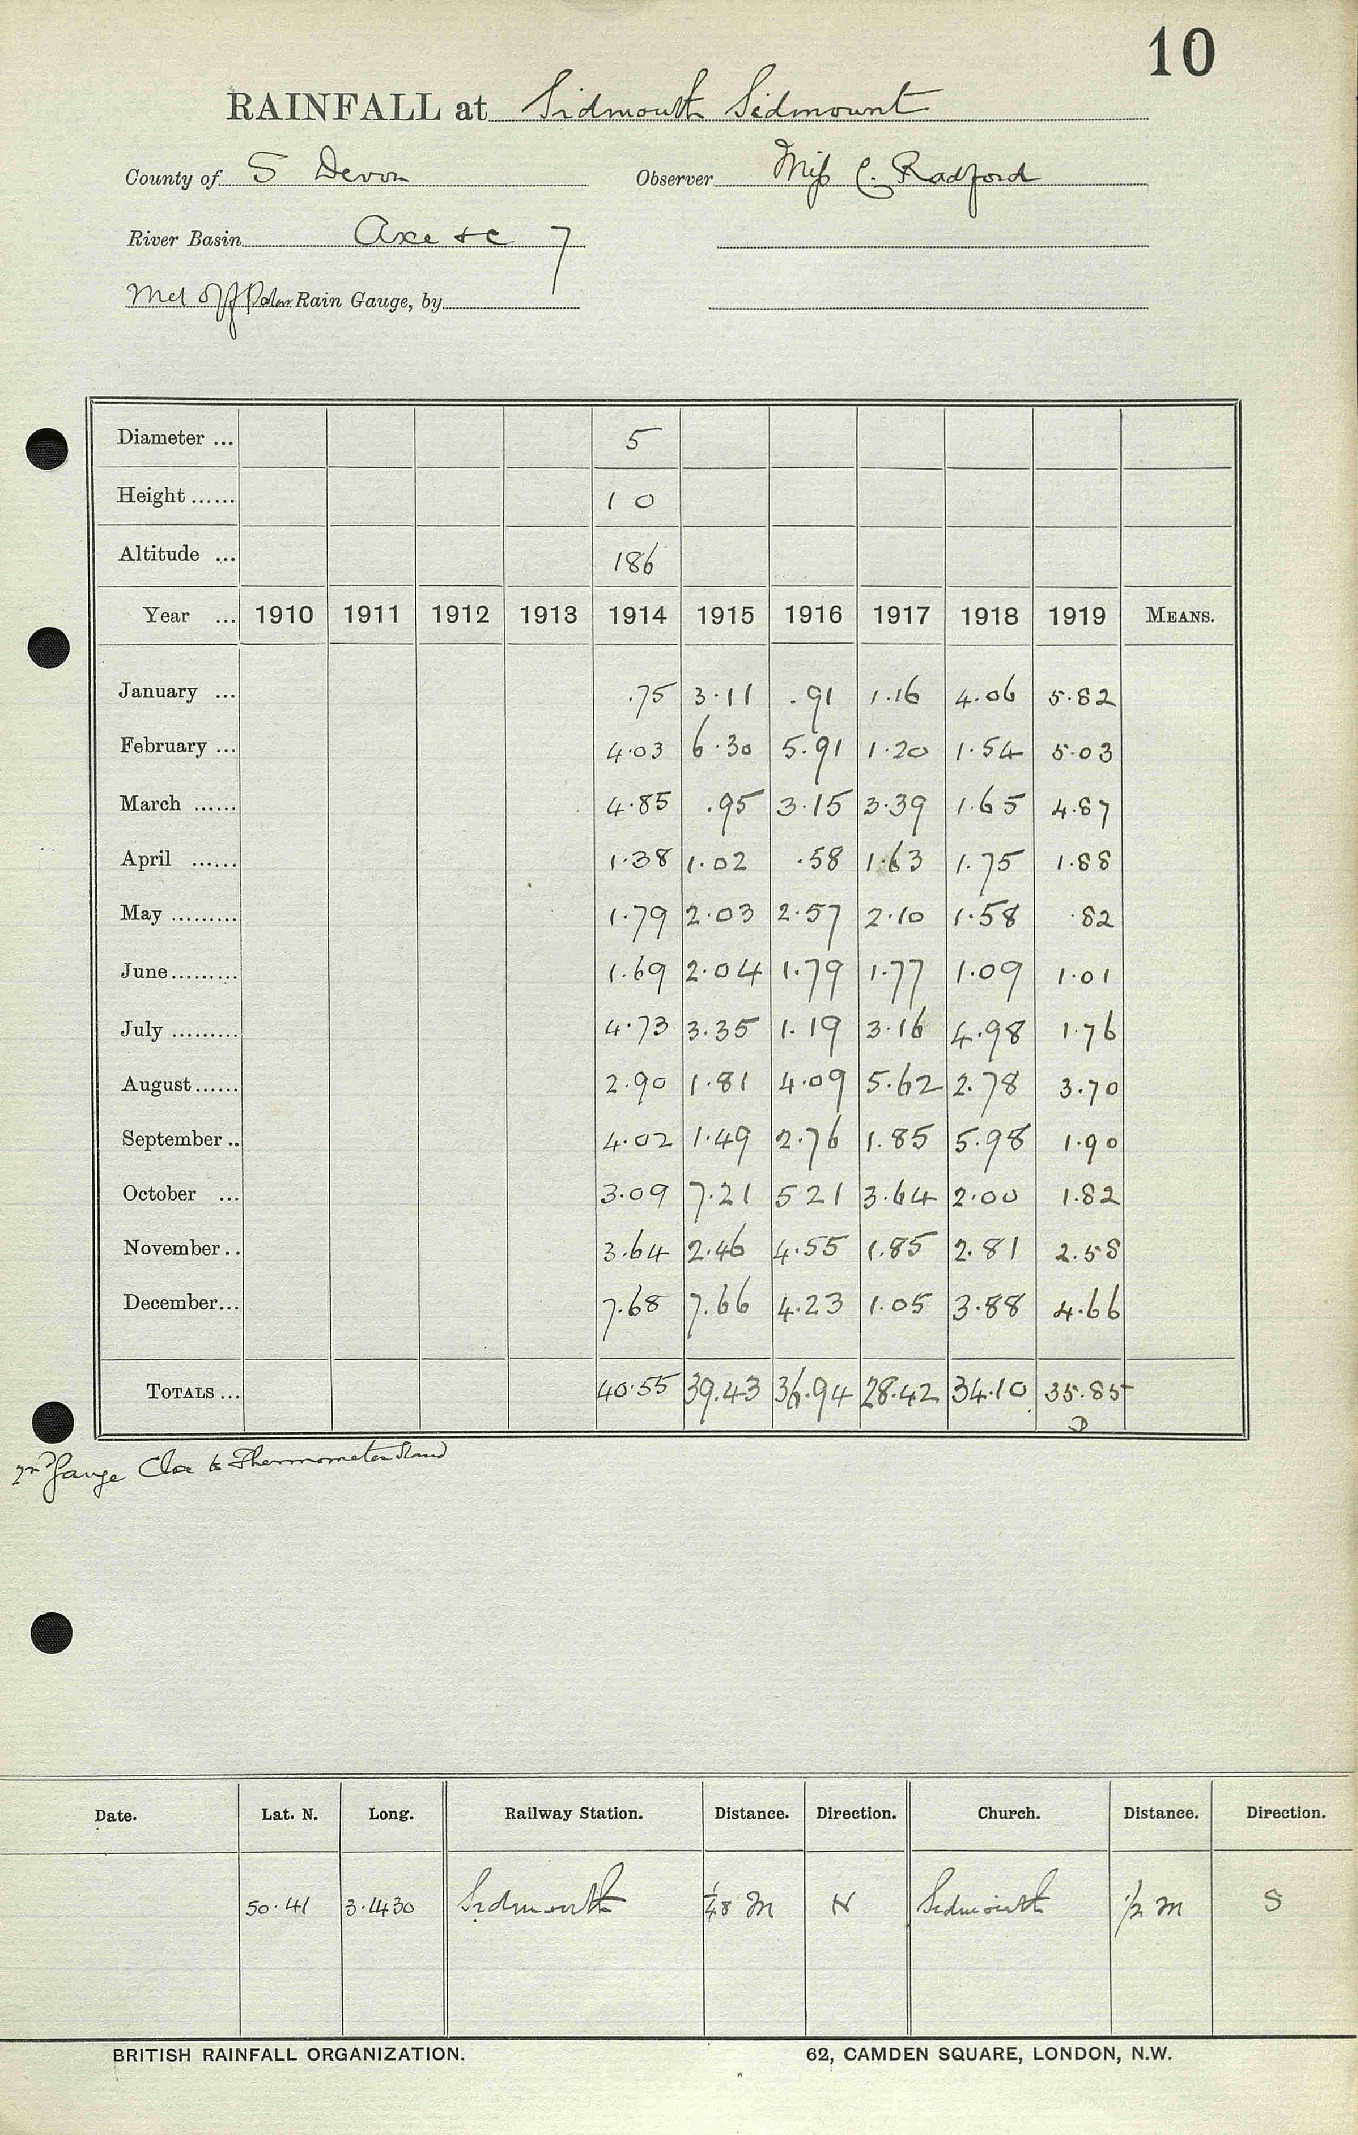 10
RAINFALL at Sidmouth Sidmount
County of S Devon Observer Miss C. Radford
River Basin Axe &c 7
Met Off Rain Gauge, by
Diameter ... 5
Height ...... 10
Altitude ... 186
Year ... 1910 1911 1912 1913 1914 1915 1916 1917 1918 1919 MEANS.
January ... .75 3.11 .91 1.16 4.06 5.82
February ... 4.03 6.30 5.91 1.20 1.54 5.03
March ...... 4.85 .95 3.15 3.39 1.65 4.87
April ...... 1.38 1.02 .58 1.63 1.75 1.88
May ......... 1.79 2.03 2.57 2.10 1.58 .82
June......... 1.69 2.04 1.79 1.77 1.09 1.01
July ......... 4.73 3.35 1.19 3.16 4.98 1.76
August...... 2.90 1.81 4.09 5.62 2.78 3.70
September .. 4.02 1.49 2.76 1.85 5.98 1.90
October ... 3.09 7.21 5 21 3.64 2.00 1.82
November.. 3.64 2.46 4.55 1.85 2.81 2.58
December... 7.68 7.66 4.23 1.05 3.88 4.66
TOTALS ... 40.55 39.43 36.94 28.42 34.10 35.85
D
Gauge Close to Thermometer Stand
Date. Lat. N. Long. Railway Station. Distance. Direction. Church. Distance. Direction.
50.41 3.1430 Sidmouth M N Sidmouth 1/2 m S
BRITISH RAINFALL ORGANIZATION. 62, CAMDEN SQUARE, LONDON, N.W.